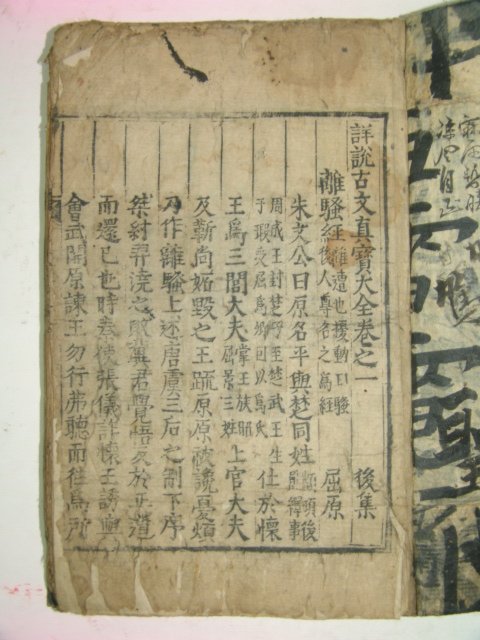 詳說古文眞寶大全卷之一 後集
離騷經 離遭也擾動曰騷後人尊名之爲經 屈原
朱文公曰原名平與楚同姓 顓頊後
周成王封楚 至楚武王生
子瑕受屈爲卿因以爲氏 仕於懷
王爲三閭大夫 掌王族昭屈景三姓 上官大夫
及靳尙妬毁之王疏原原被讒憂煩
乃作離騷上述唐虞三后之制下序
桀紂羿澆之敗冀君覺悟反於正道
而還已也時秦使張儀詐懷王誘與
會武關原諫王勿行弗聽而往爲所